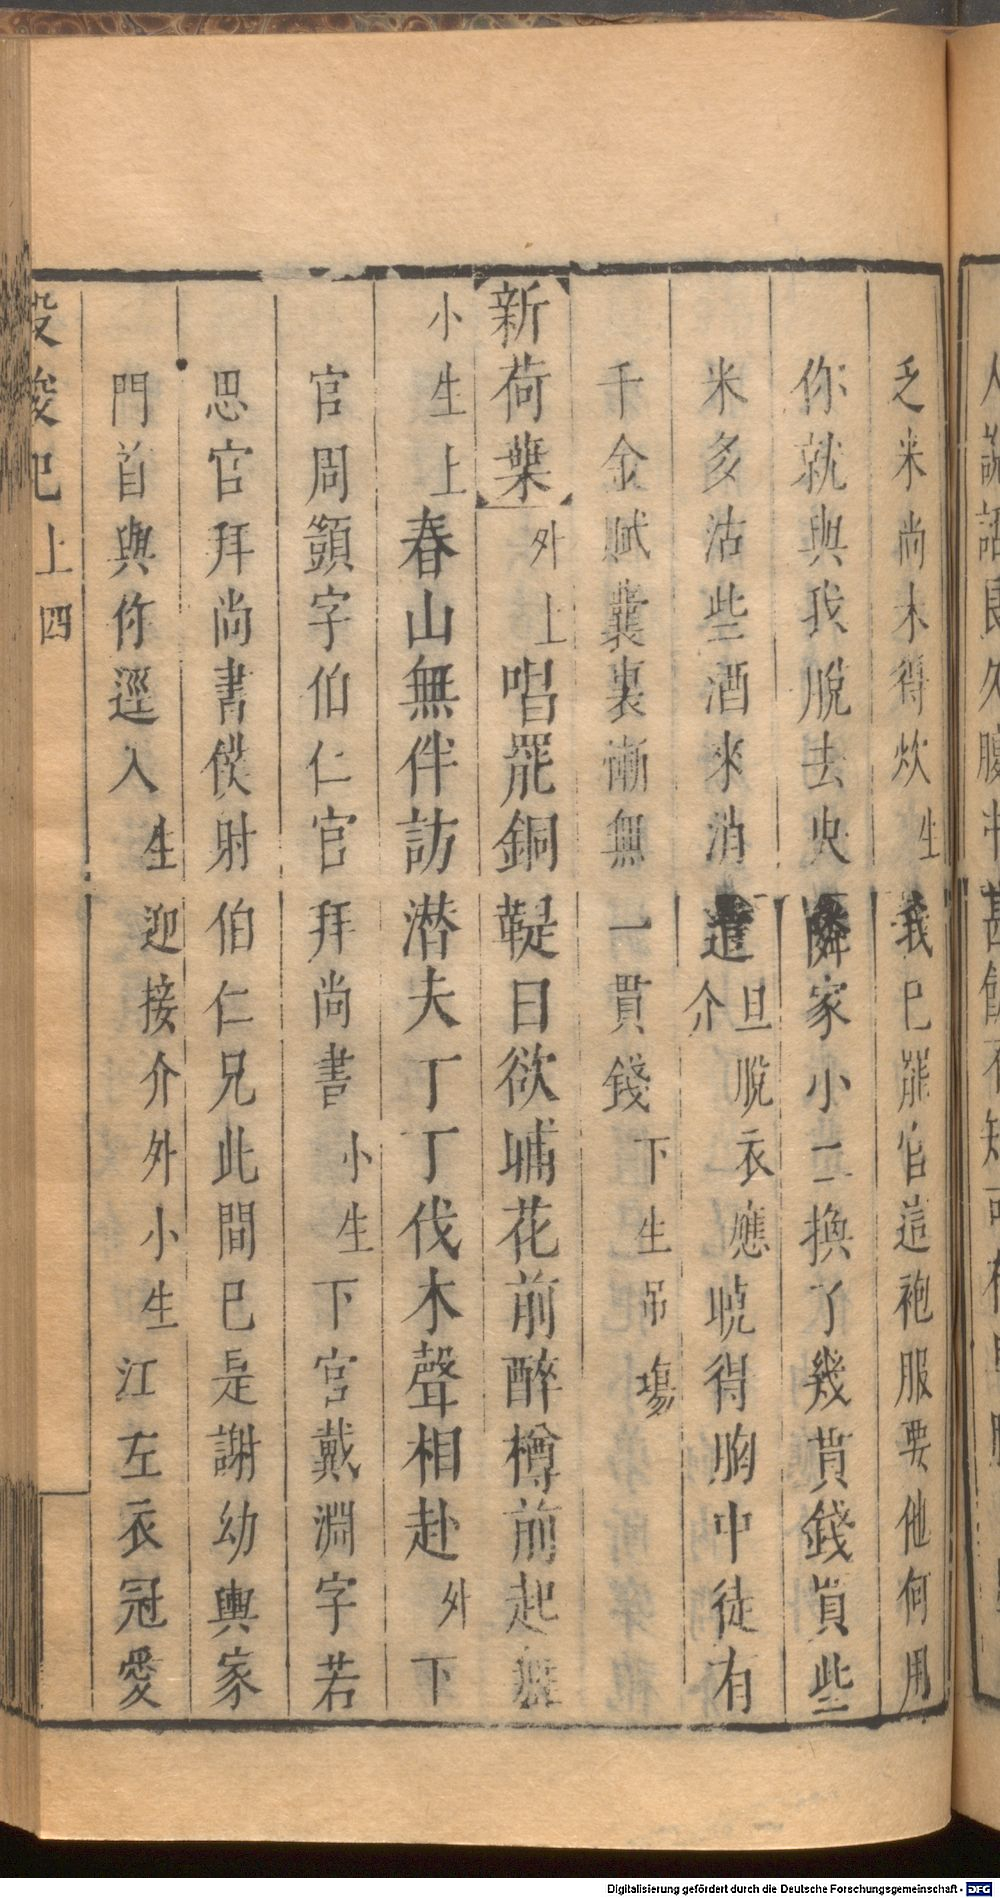 乏米尚未得炊生我已罷官這袍服要他何用
你就與我脫去央隣家小二換了幾貫錢買些
米多沽些酒來消遣旦脫衣應介曉得胸中徒有
千金賦囊裏漸無一貫錢下生吊塲
新荷葉外上唱罷銅鞮日欲晡花前醉樽前起
小生上春山無伴訪潜夫丁丁伐木聲相赴外下
官周顗字伯仁官拜尚書小生下官戴淵字若
思官拜尚書僕射伯仁兄此間已是謝幼輿家
門首與你逕入生迎接介外小生江左衣冠愛
投梭記上四
Digitalisierung gefördert durch die Deutsche Forschungsgemeinschaft - DFG